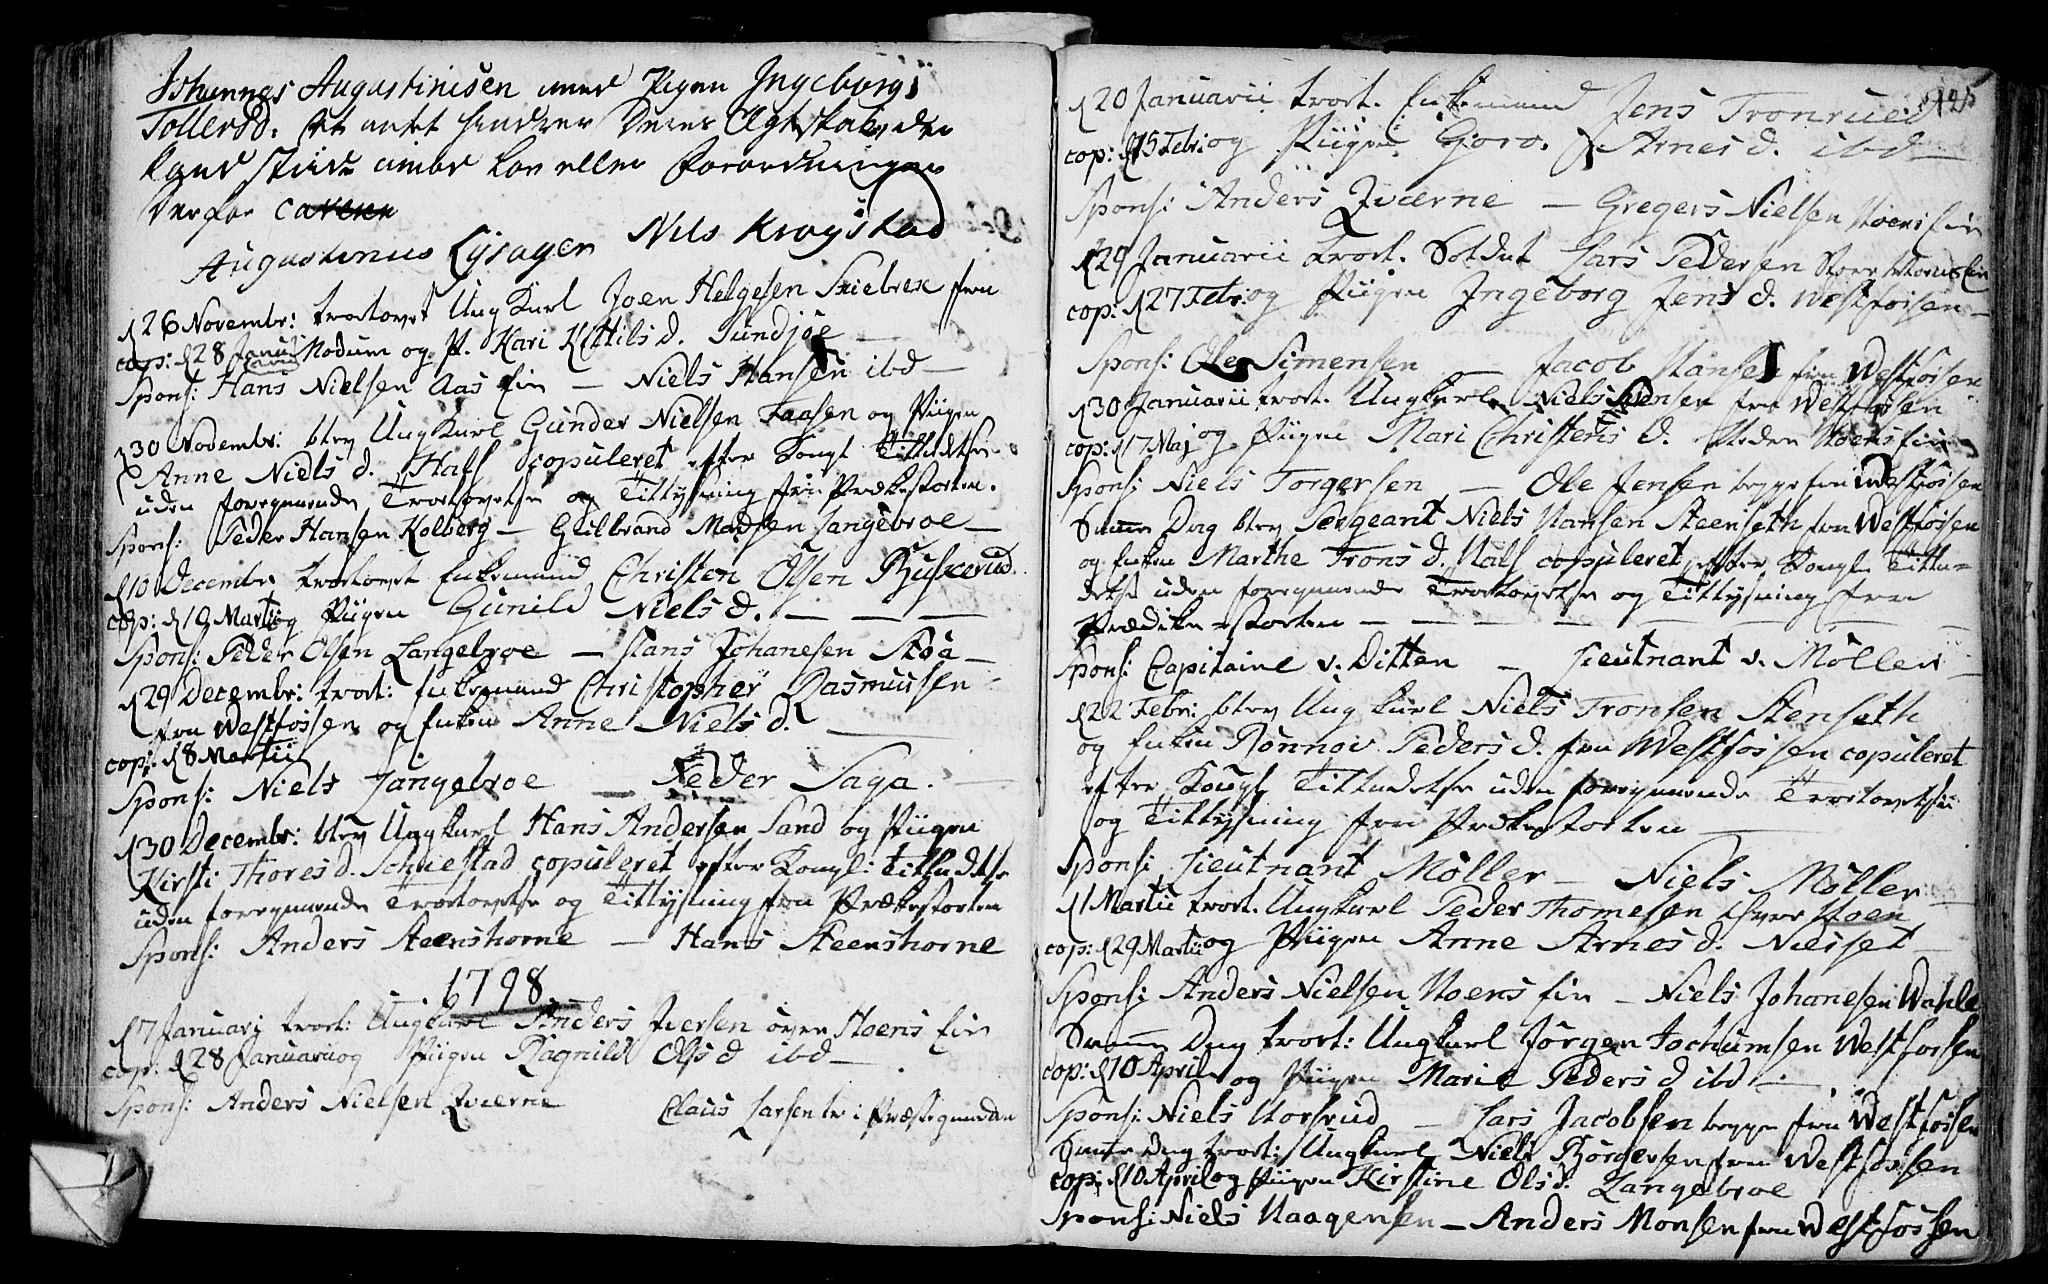 Johannes Augustinusen med Pigen Ingeborg
Tollersd. At intet hindrer Deres Ægteskab, der
kand stride imod Lov eller Forordninger
Derfor cavere
Augustinus Lysager Nils Krogstad
d 26 Novembr: trolovet Ungkarl Joen Helgesen Skielbrek fra
cop: d 28 Januj Modum og P. Kari Kittilsd. Sundjøe
Spons: Hans Nielsen Aas Eie – Niels Hansen ibd –
d 30 Novembr: blev Ungkarl Gunder Nielsen Faasen og Piigen
Anne Nielsd. Hals copuleret efter Kongl Tilladelse
uden foregaaende Trolovelse og Tillysning fra Prækestolen.
Spons: Peder Hansen Kolberg – Gulbrand Madsen Langebroe –
d 10 Decembr trolovet Enkemand Christen Olsen Buskerud
cop: d 19 Martii og Piigen Gunild Nielsd. – – –
Spons: Peder Olsen Langebroe – Hans Johanesen Støa –
d 29 Decembr: trol: Enkemand Christopher Rasmussen
fra Westfossen og Enken Anne Nielsd.
cop: d 8 Martii
Spons: Niels Langebroe – Peder Saga. –
d 30 Decembr: blev Ungkarl Hans Andersen Sand og Piigen
Kirsti Thoresd. Schiestad copuleret efter Kongl: Tilladelse
uden foregaaende Trolovelse og Tillysning fra Prækestolen
Spons: Anders Steenshorne – Hans Steenshorne
1798
d 7 Januarj trol: Ungkarl Anders Iversen øvre Hoens Eie
cop: d 28 Januarii og Piigen Ragnild Olsd ibd –
Spons: Anders Nielsen Qverne Claus Larsen i Præstegaarden
125
d 20 Januarii trol. Enkemand Jens Tronrud
cop: d 15 Febr: og Piigen Goro Arnesd. ibd –
Spons: Anders Qverne – Gregers Nielsen Hoens Eie
d 29 Januarii trol. Soldat Lars Pedersen
cop: d 27 Febr: og Piigen Ingeborg Jensd. Westfossen –
Spons: Ole Simensen – Jacob Hansen fra Westfossen
d 30 Januarii trol. Ungkarl Niels fra Westfossen
cop: d 17 Maj og Piigen Mari Christensd. Neden Hoens Eie
Spons: Niels Torgersen – Ole Jensen begge fra Westfossen
Samme Dag blev Sergeant Niels Hansen Steenseth fra Westfossen
og Enken Marthe Tronsd. Hals copuleret efter Kongl Tilla=
delse uden foregaaende Trolovelse og Tillysning fra
Prædike-Stolen – – – – – – –
Spons: Capitaine v. Ditten – Lieutnant v. Møller –
d 22 Febr: blev Ungkarl Niels Tronsen Stenseth
og Enken Rønnov Pedersd. fra Westfossen copuleret
efter Kongl Tilladelse uden foregaaende Trolovelse
og Tillysning fra Prækestolen –
Spons: Lieutnant Møller – Niels Møller –
d 1 Martii trol. Ungkarl Peder Thomesen Hoen
cop: d 29 Martii og Piigen Anne Arnesd. Næsset –
Spons: Anders Nielsen Hoens Eie – Niels Johanesen Wahle
Samme Dag trol: Ungkarl Jørgen Jochumsen Westfossen
cop: d 10 April og Piigen Marie Pedersd ibd –
Spons: Niels Horsrud – Lars Jacobsen begge fra Westfossen
Samme Dag trol: Ungkarl Niels Børgersen fra Westfossen
cop: d 10 April og Piigen Kirstine Olsd. Langebroe
Spons: Niels Haagensen – Anders Monsen fra Westfossen